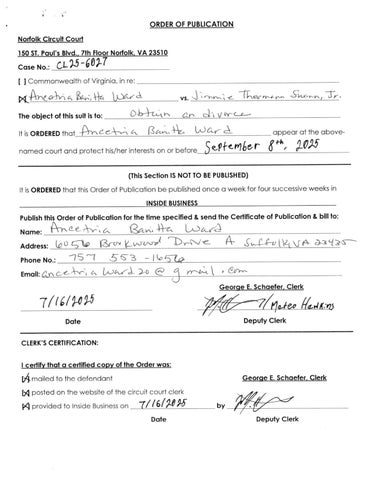 ORDER OF PUBLICATION
Norfolk Circuit Court
150 ST. Paul's Blvd., 7th Floor Norfolk, VA 23510
Case No.: CL25-6027
[ ] Commonwealth of Virginia, in re:
[x] Ancetria Banitta Ward vs. Jimmie Thormann Shann, Jr.
The object of this suit is to: Obtain an divorce
It is ORDERED that Ancetria Banitta Ward appear at the above-
named court and protect his/her interests on or before September 8th, 2025
(This Section IS NOT TO BE PUBLISHED)
It is ORDERED that this Order of Publication be published once a week for four successive weeks in
INSIDE BUSINESS
Publish this Order of Publication for the time specified & send the Certificate of Publication & bill to:
Name: Ancetria Banitta Ward
Address: 6056 Brookwood Drive A Suffolk VA 23435
Phone No.: 757 553-1656
Email: ancetria ward 20 @ g mail . com
George E. Schaefer, Clerk
7/16/2025 / Mateo Hawkins
Date Deputy Clerk
CLERK'S CERTIFICATION:
I certify that a certified copy of the Order was:
[x] mailed to the defendant George E. Schaefer, Clerk
[x] posted on the website of the circuit court clerk
[x] provided to Inside Business on 7/16/2025 by
Date Deputy Clerk